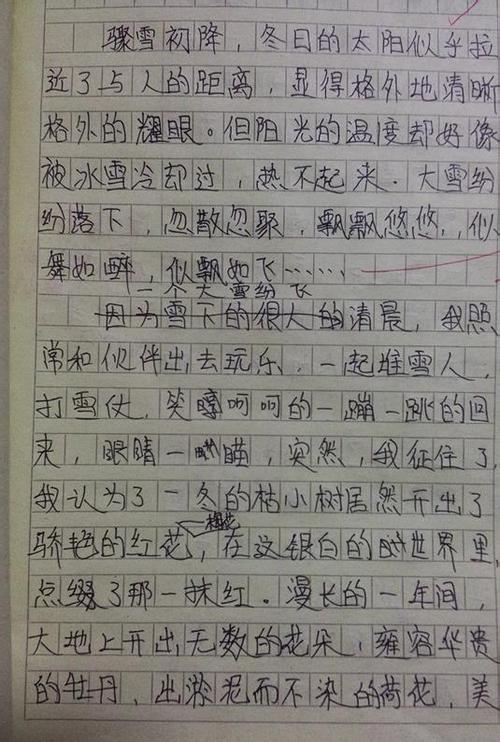 骤雪初降，冬日的太阳似乎拉
近了与人的距离，显得格外地清晰
格外的耀眼。但阳光的温度却好像
被冰雪冷却过，热不起来．大雪纷
纷落下，忽散忽聚，飘飘悠悠，似
舞如醉，似飘如飞……
一个大雪纷飞
因为雪下的很大的清晨，我照
常和伙伴出去玩乐，一起堆雪人，
打雪仗，笑呵呵的一蹦一跳的回
来，眼睛一瞄，突然，我征住了
我认为了一冬的枯小树居然开出了
梅花
骄艳的红花，在这银白的世界里，
点缀了那一抹红．漫长的一年间，
大地上开出无数的花朵，雍容华贵
的牡丹，出淤泥而不染的荷花，美